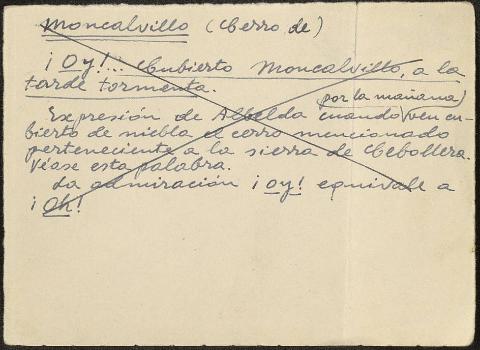 Moncalvillo (Cerro de)
¡Oy!... Cubierto Moncalvillo, a la
tarde tormenta.
por la mañana)
Expresión de Albelda cuando ven cu-
bierto de niebla el cerro mencionado
perteneciente a la sierra de Cebollera.
Véase esta palabra.
La admiración ¡oy! equivale a
¡oh!